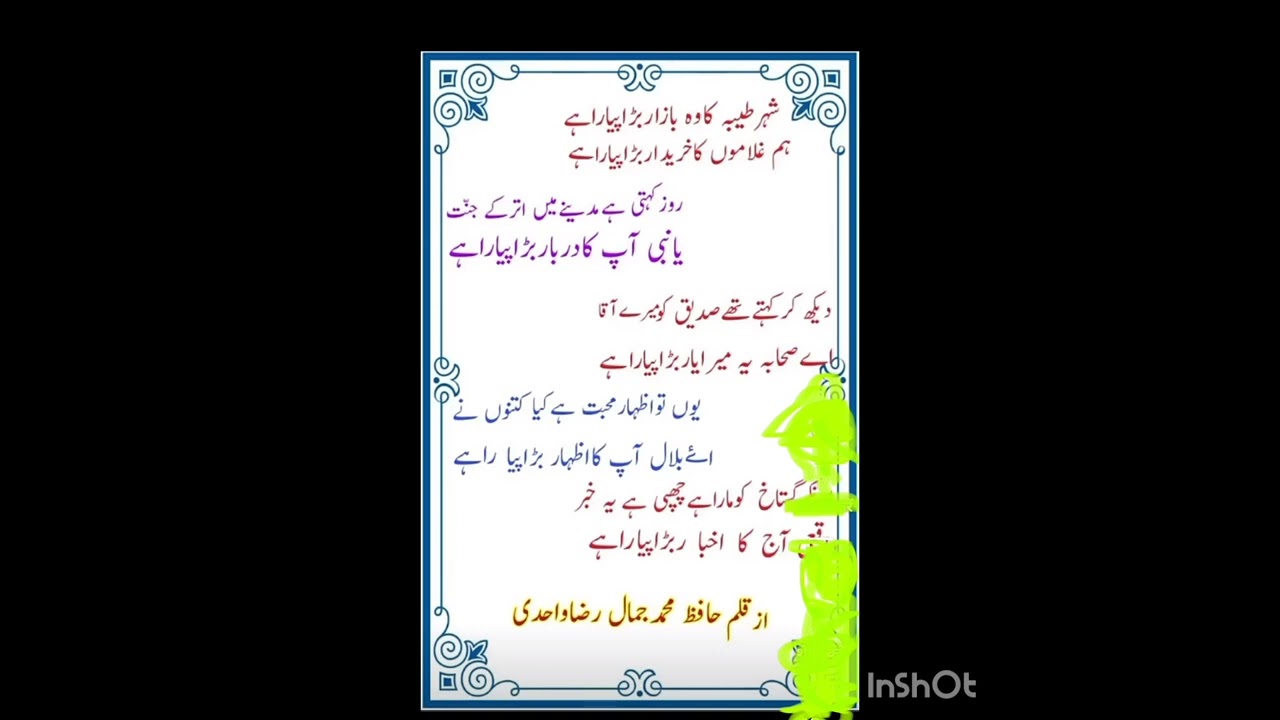 شہر طیبہ کا وہ بازار بڑا پیارا ہے
ہم غلاموں کا خریدار بڑا پیارا ہے
روز کہتی ہے مدینے میں اتر کے جنّت
یا نبی آپ کا دربار بڑا پیارا ہے
دیکھ کر کہتے تھے صدیق کو میرے آقا
اے صحابہ یہ میرا یار بڑا پیارا ہے
یوں تو اظہار محبت ہے کیا کتنوں نے
ائے بلال آپ کا اظہار بڑا پیا را ہے
گستاخ کو مارا ہے چھپی ہے یہ خبر
آج کا اخبا ر بڑا پیارا ہے
از قلم حافظ محمد جمال رضا واحدی
InShOt